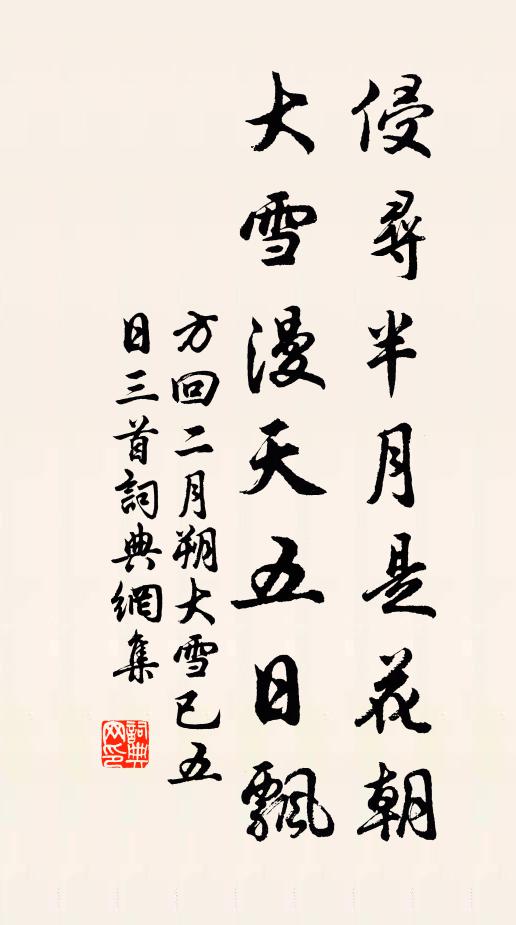 侵尋半月是花朝
大雪漫天五日飄
方回二月朔大雪已五
日三首詞典網集
詞典网印